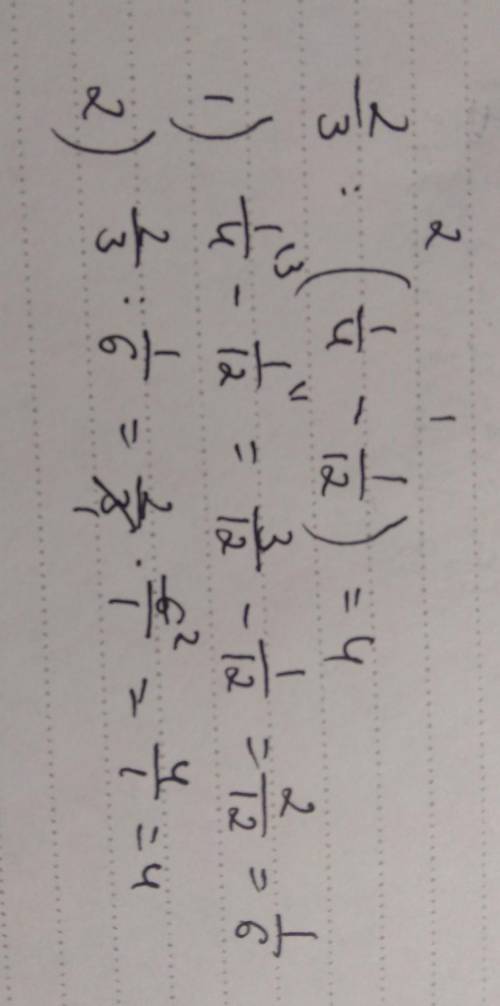 2 1
2/3 : (1/4 - 1/12) = 4
1) 1/4 \3 - 1/12 \1 = 3/12 - 1/12 = 2/12 = 1/6
2) 2/3 : 1/6 = 2/3 1 · 6/1 2 = 4/1 = 4